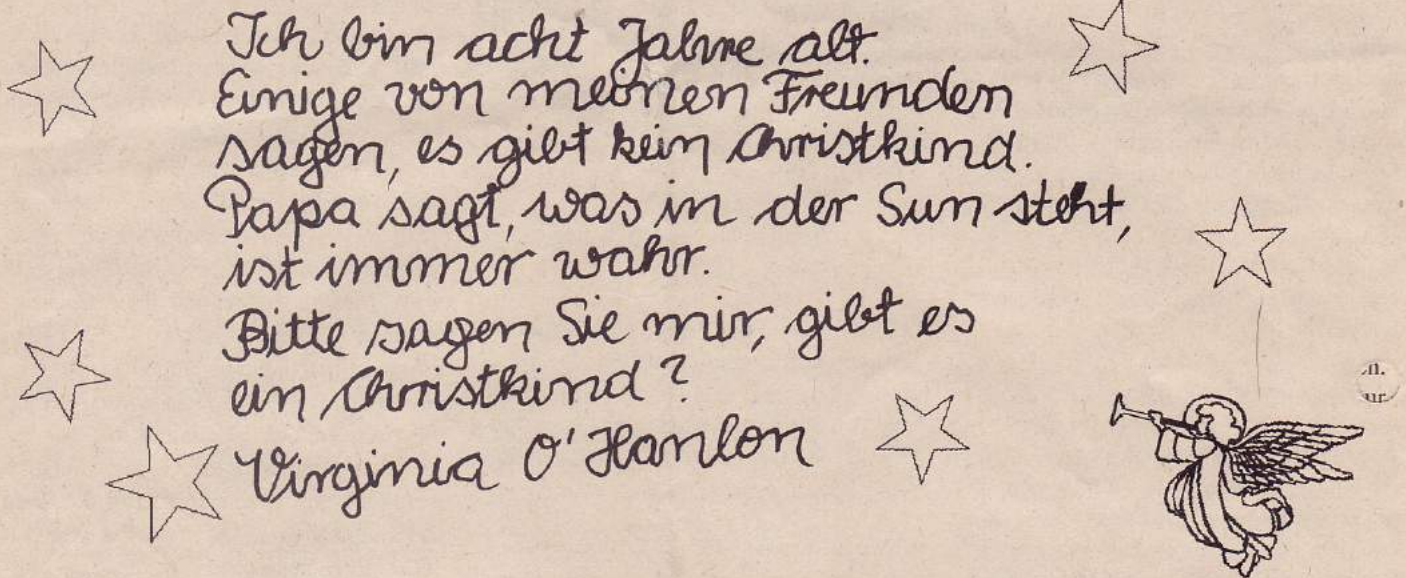 Ich bin acht Jahre alt.
Einige von meinen Freunden
sagen, es gibt kein Christkind.
Papa sagt, was in der Sun steht,
ist immer wahr.
Bitte sagen Sie mir, gibt es
ein Christkind?
Virginia O'Hanlon